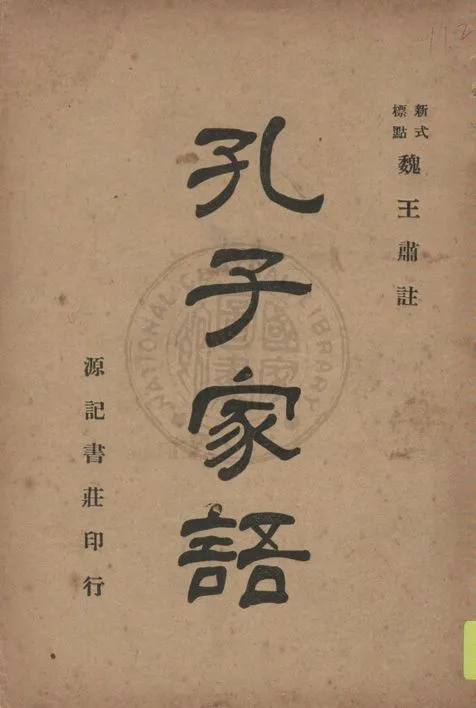 新式
標點
魏王肅註
孔子家語
源記書莊印行
NATIONAL CENTRAL LIBRARY
112